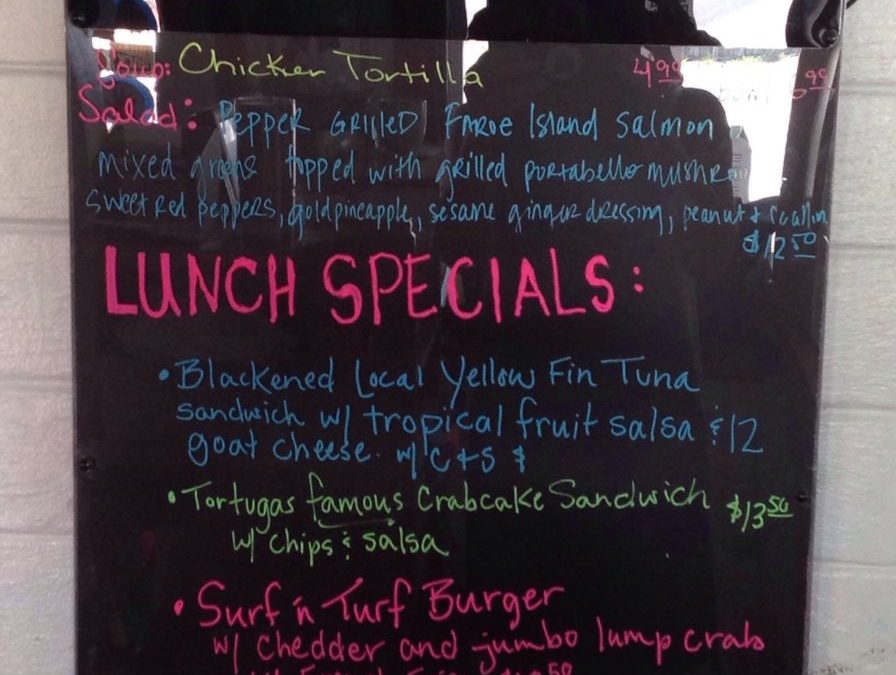 Soup: Chicken Tortilla 4.99 bowl 6.99
Salad: Pepper Grilled Faroe Island Salmon
mixed greens topped with grilled portabello
sweet red peppers, gold pineapple, sesame ginger dressing, peanut &
$12.50
LUNCH SPECIALS:
• Blackened Local Yellow Fin Tuna
sandwich w/ tropical fruit salsa & 12
goat cheese. w/ C+S $
• Tortugas famous Crabcake Sandwich $13.50
w/ chips & salsa
• Surf 'n Turf Burger
w/ Chedder and jumbo lump crab